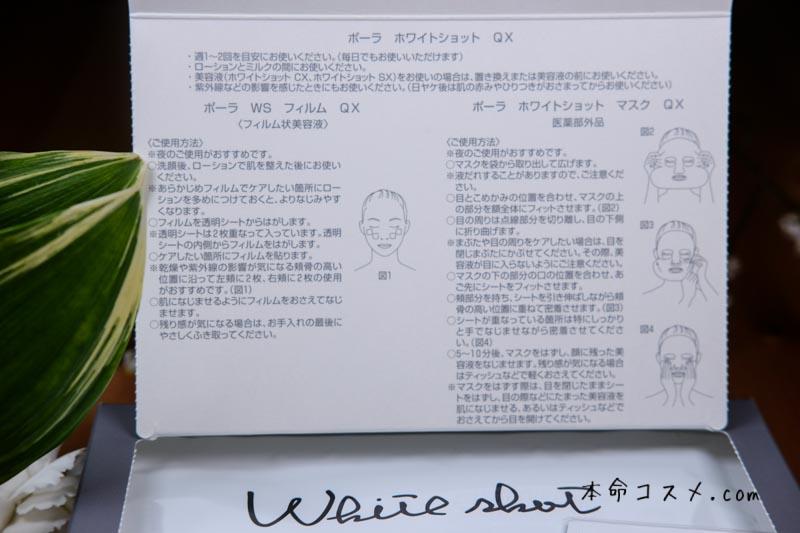 ポーラ ホワイトショット QX
・週1〜2回を目安にお使いください。(毎日でもお使いいただけます)
・ローションとミルクの間にお使いください。
・美容液(ホワイトショット CX、ホワイトショット SX)をお使いの場合は、置き換えまたは美容液の前にお使いください。
・紫外線などの影響を感じたときにもお使いください。(日ヤケ後は肌の赤みやひりつきがおさまってからお使いください)
ポーラ WS フィルム QX
〈フィルム状美容液〉
〈ご使用方法〉
※夜のご使用がおすすめです。
○洗顔後、ローションで肌を整えた後にお使い
ください。
※あらかじめフィルムでケアしたい箇所にロー
ションを多めにつけておくと、よりなじみやす
くなります。
○フィルムを透明シートからはがします。
※透明シートは2枚重なって入っています。透明
シートの内側からフィルムをはがします。
○ケアしたい箇所にフィルムを貼ります。
※乾燥や紫外線の影響が気になる頬骨の高い
位置に沿って左頬に2枚、右頬に2枚の使用
がおすすめです。(図1)
○肌になじませるようにフィルムをおさえてなじ
ませます。
○残り感が気になる場合は、お手入れの最後に
やさしくふき取ってください。
図1
ポーラ ホワイトショット マスク QX
医薬部外品
〈ご使用方法〉
※夜のご使用がおすすめです。
○マスクを袋から取出して広げます。
※液だれすることがありますので、ご注意くださ
い。
○目とこめかみの位置を合わせ、マスクの上
の部分を額全体にフィットさせます。(図2)
○目の周りは点線部分を切り離し、目の下側
に折り曲げます。
※まぶたや目の周りをケアしたい場合は、目を
閉じまぶたにかぶせてください。その際、美
容液が目に入らないようにご注意ください。
○マスクの下の部分の口の位置を合わせ、あ
ご先にシートをフィットさせます。
○頬部分を持ち、シートを引き伸ばしながら頬
骨の高い位置に重ねて密着させます。(図3)
○シートが重なっている箇所は特にしっかり
と手でなじませながら密着させてくださ
い。(図4)
○5〜10分後、マスクをはずし、顔に残った美
容液をなじませます。残り感が気になる場合
はティッシュなどで軽くおさえてください。
※マスクをはずす際は、目を閉じたままシー
トをはずし、目の際などにたまった美容液を
肌になじませる、あるいはティッシュなどで
おさえてから目を開けてください。
図2
図3
図4
White shot
本命コスメ.com